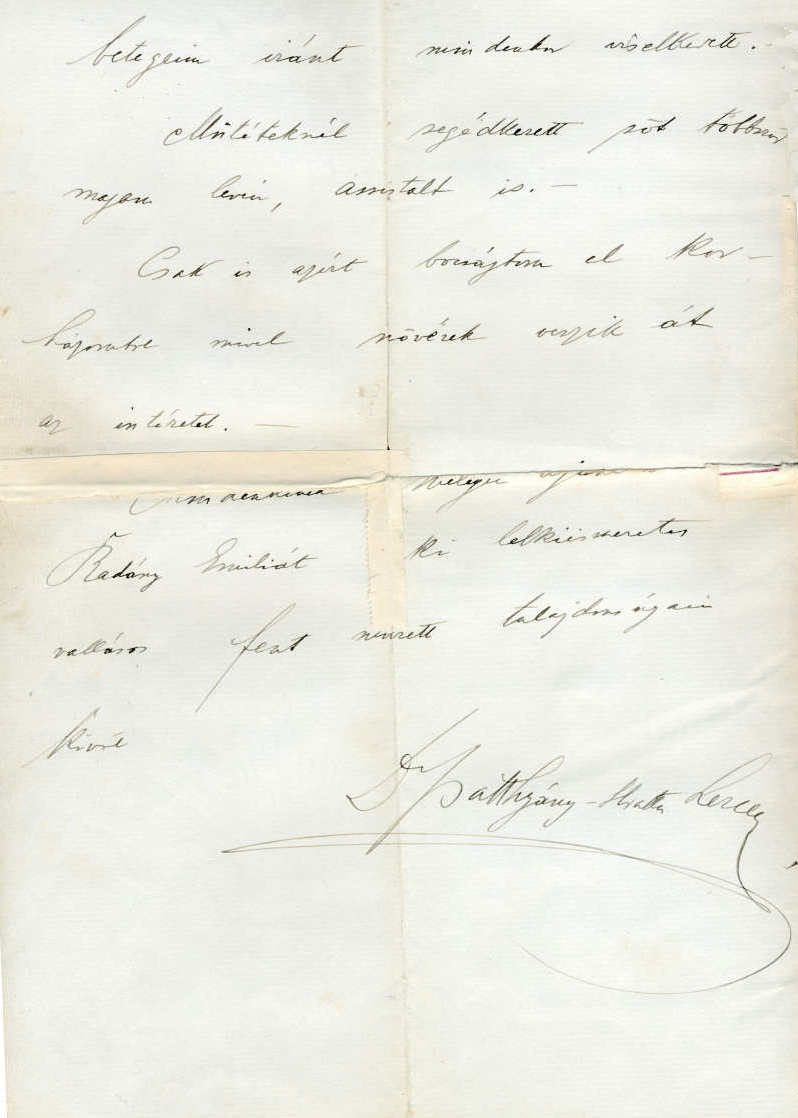 betegeim iránt mindenkor viselkedett. –
Műtéteknél segédkezett sőt többször
magam lévén, assistált is. –
Csak is azért bocsájtom el Kor-
házomból mivel nővérek veszik át
az intézetet. –
melegen
Radány Emiliát ki lelkiismeretes
vallásos fent nevezett tulajdonságain
kívül
Dr Batthyány-Strattm László